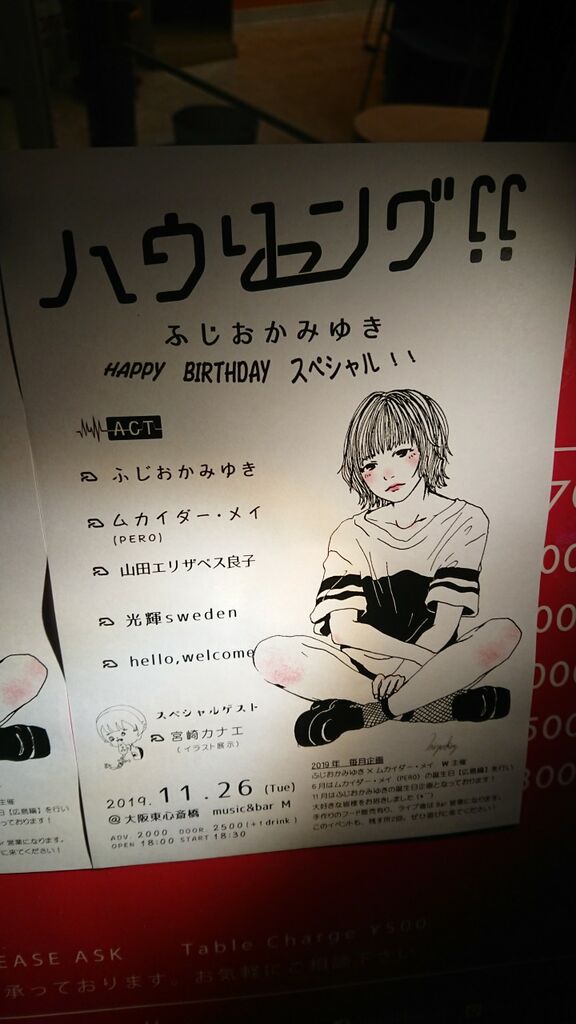 ハウリング!!
ふじおかみゆき
HAPPY BIRTHDAY スペシャル!!
ACT
ふじおかみゆき
ムカイダー・メイ
(PERO)
山田エリザベス良子
光輝sweden
hello,welcome
スペシャルゲスト
宮崎カナエ
(イラスト展示)
2019.11.26 (Tue)
@大阪東心斎橋 music&bar M
ADV. 2000 DOOR. 2500(+1drink)
OPEN 18:00 START 18:30
2019年 毎月企画
ふじおかみゆき×ムカイダー・メイ W主催
6月はムカイダー・メイ (PERO) の誕生日【広島編】を行い
11月はふじおかみゆきの誕生日企画となっております!
大好きな皆様をお招きしました
手作りのフード販売有り、ライブ後は Bar 営業になります。
このイベントも、残す所2回、ぜひ遊びに来てください!
主催
日【広島編】を行い
っております!
r 営業になります。
に来てください!
70
00
00
000
500
800
EASE ASK Table Charge ¥500
承っております。お気軽にご相談下さい